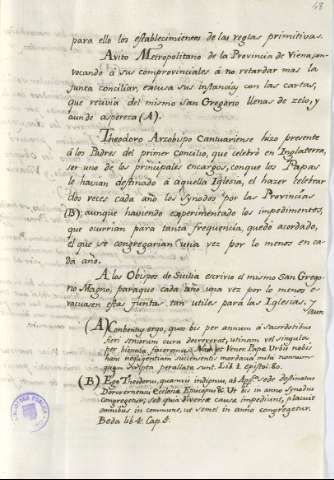 48
para ello los establecimientos de las reglas primitivas.
Avito Metropolitano de la Provincia de Viena, con-
vocando á sus comprovinciales á no retardar mas la
Junta conciliar, excusa sus instancias con las cartas,
que recivia del mismo san Gregorio llenas de zelo, y
aun de aspereza (A).
Theodoro Arzobispo Cantuariense hizo presente
á los Padres del primer concilio, que celebró en Inglaterra,
ser uno de los principales encargos, con que los Papas
lo havian destinado á aquella Iglesia, el hazer celebrar
dos veces cada año los Synodos por las Provincias
(B); aunque haviendo experimentado los impedimentos,
que ocurrian para tanta frequencia, quedó acordado,
el que se congregarian una vez por lo menos en ca-
da año.
A los Obispos de Sicilia escrivio el mismo San Grego-
rio Magno, para que cada año una vez por lo menos e-
vacuasen estas juntas tan utiles para las Iglesias. Y
aun
(A) ergo, quo bis per annum á sacerdotibus
fieri seniorum cura decreverat, utinam vel singulis
per bienata faceremus. Papæ Urbis nobis
hanc negligentiam succensens mordaci
quam scripta perallata sunt. Lib. 1. epistol. 80.
(B) Ego Theodorus, quamvis indignus, ab Apca. sede destinatus
Dorvernensis Ecclesiæ Episcopus & Ut bis in anno synodus
congregetur; sed quia diversæ causæ impediunt, placuit
omnibus in commune, ut semel in anno congregetur.
Beda lib. 4. Cap. 5.